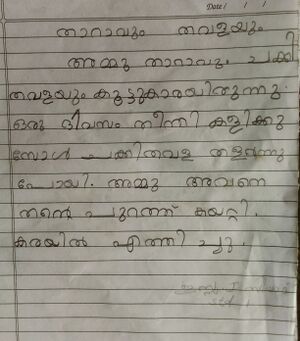 Date / /
താറാവും തവളയും
അമ്മു താറാവും ചക്കി
തവളയും കൂട്ടുകാരായിരുന്നു.
ഒരു ദിവസം നീന്തി കളിക്കു
മ്പോൾ ചക്കിതവള തളർന്നു
പോയി. അമ്മു അവനെ
തന്റെ പുറത്ത് കയറ്റി.
കരയിൽ എത്തി ച്ചു.
std 1